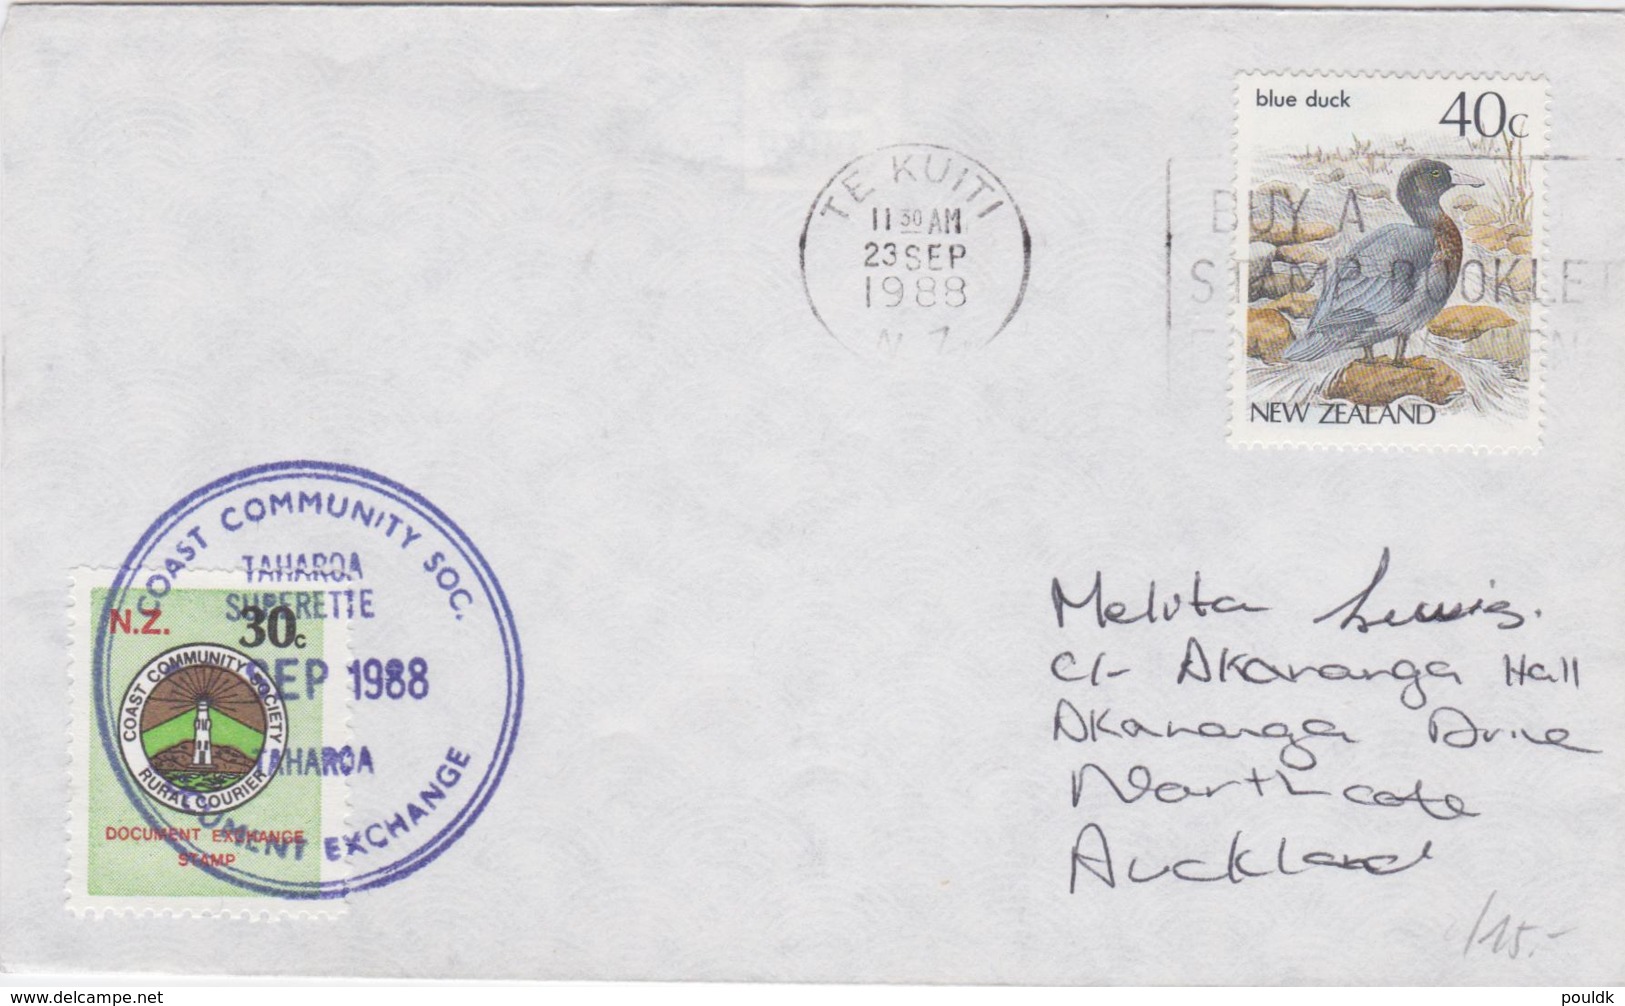 blue duck 40c
NEW ZEALAND
TE KUITI
11 30 AM
23 SEP
1988
N.Z.
BUY A
STAMP BOOKLET
COAST COMMUNITY SOC.
TAHAROA
SUPERETTE
SEP 1988
TAHAROA
DOCUMENT EXCHANGE
N.Z. 30c
COAST COMMUNITY SOCIETY
RURAL COURIER
DOCUMENT EXCHANGE
STAMP
Melita Lewis.
C/- Akoranga Hall
Akoranga Drive
Northcote
Auckland
/15.-
www.delcampe.net
pouldk